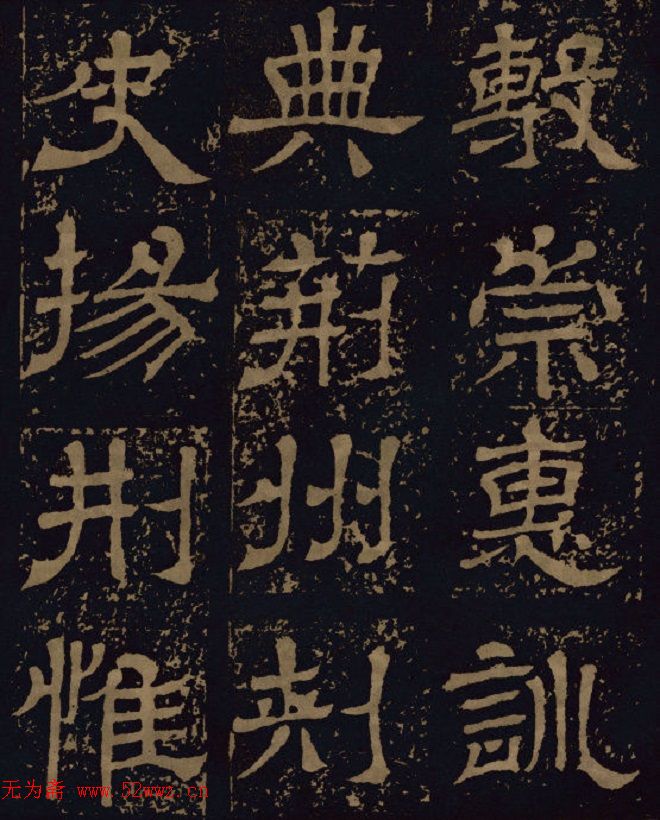 敷崇惠訓
典荊州刺
史揚刑惟
无为斋 www.52wwz.cn